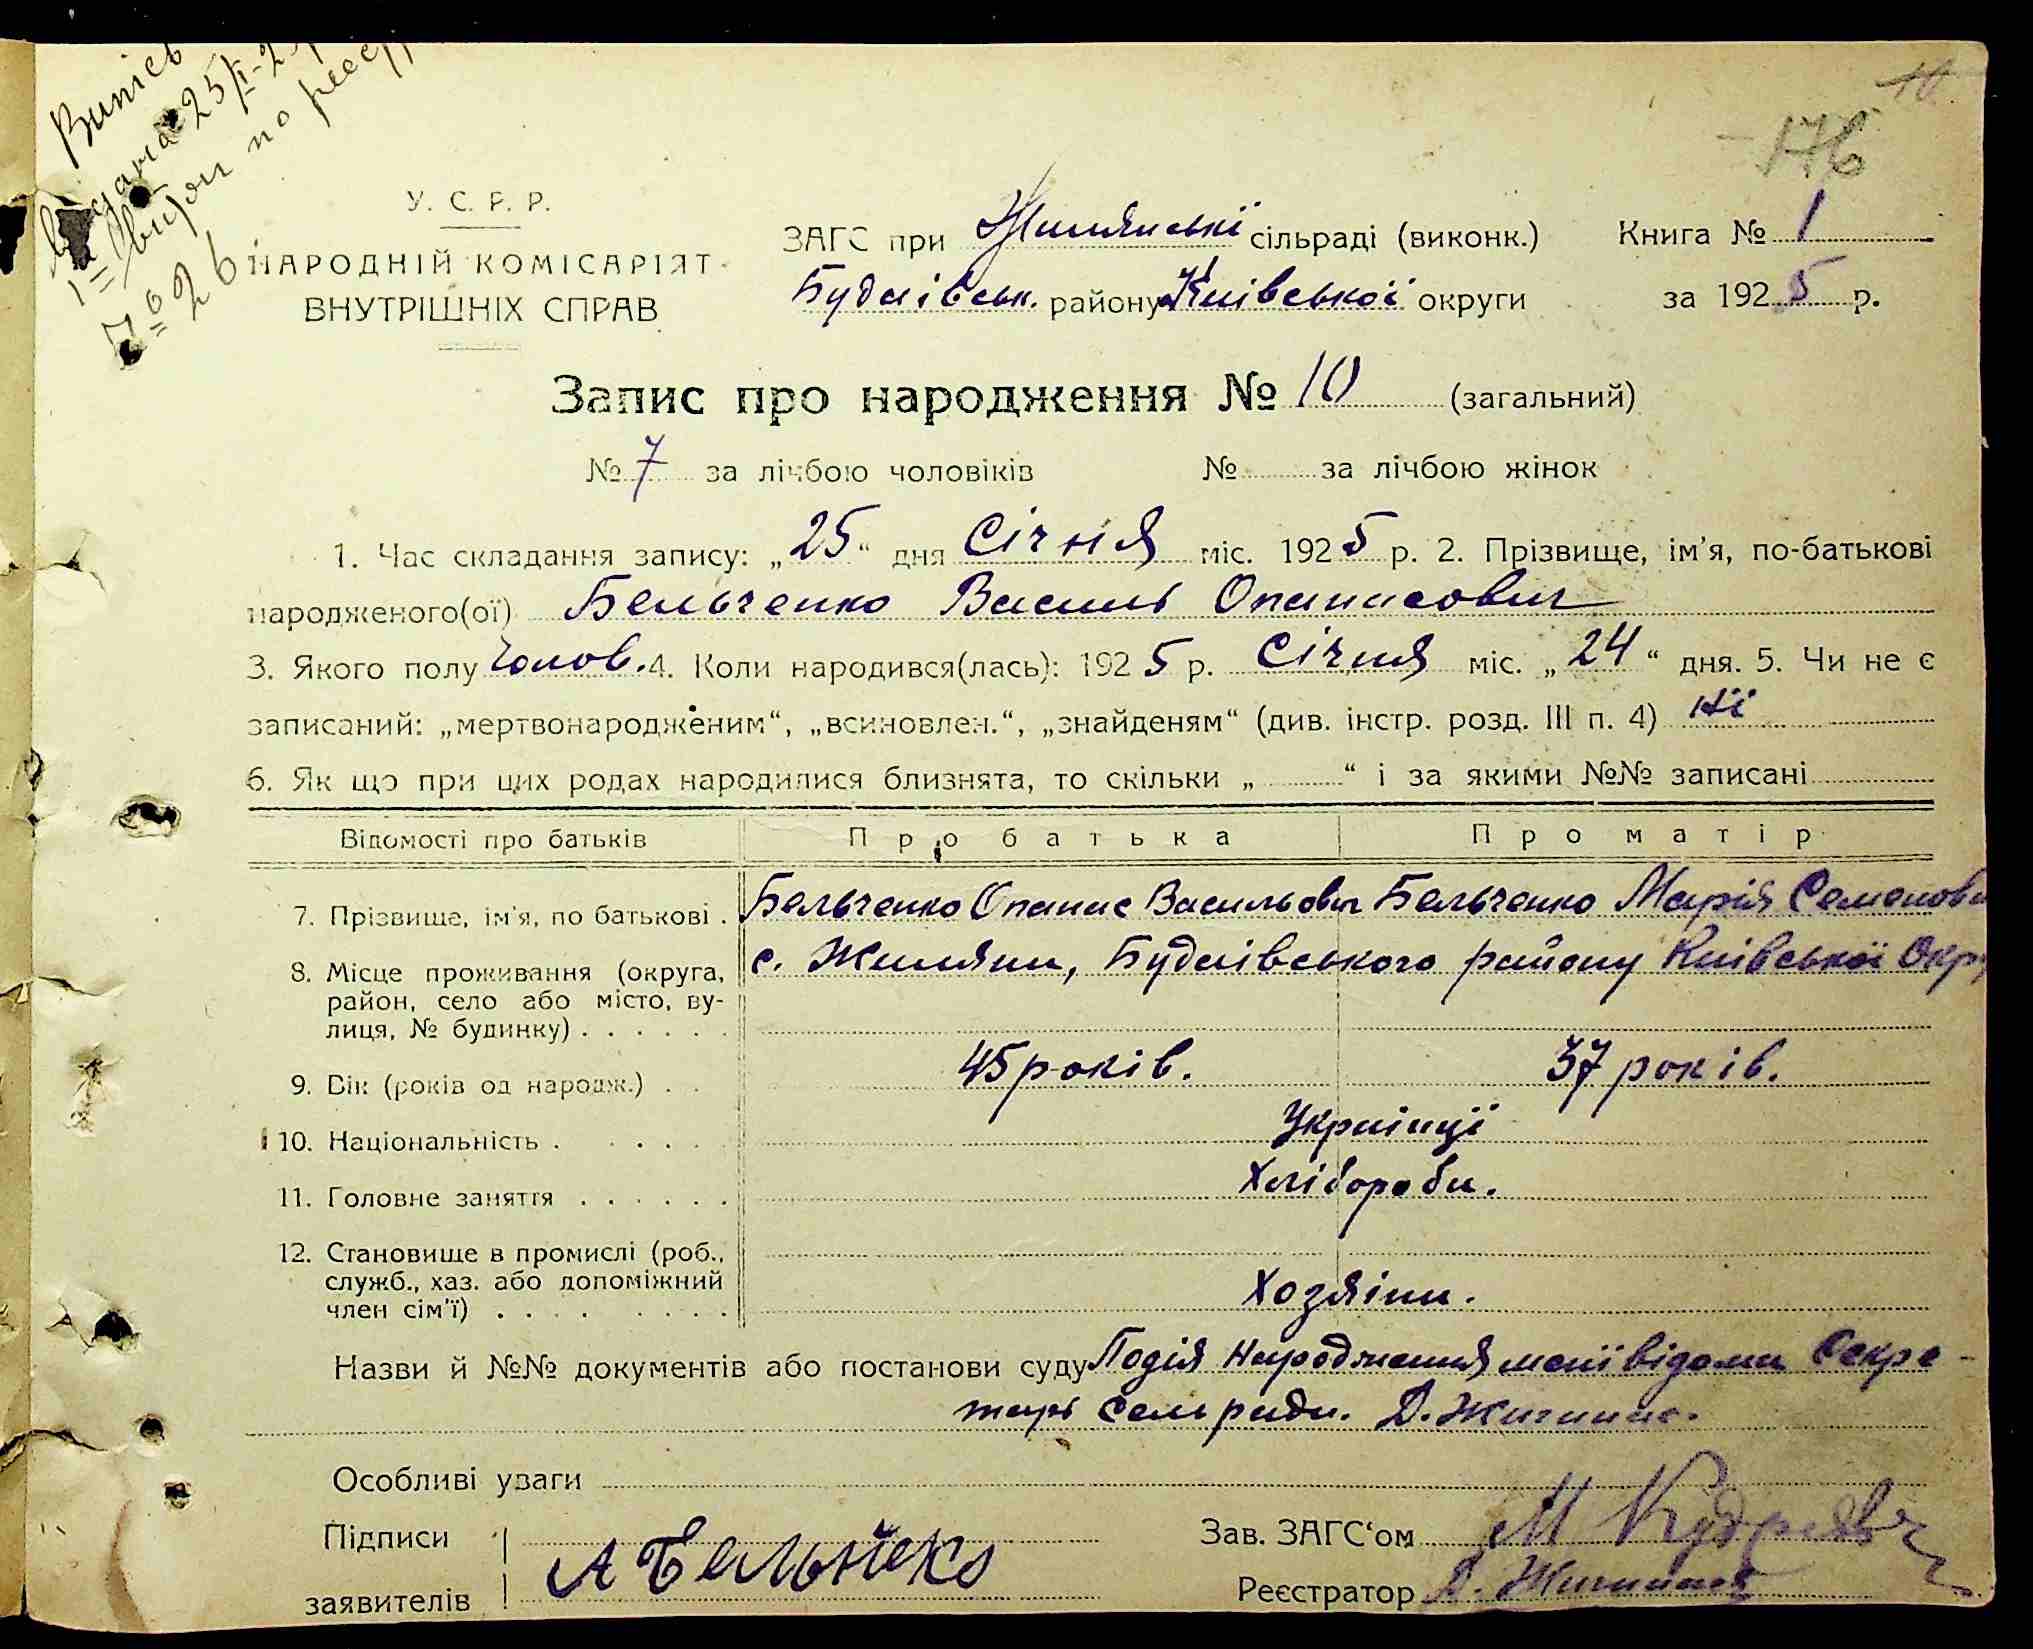 Випис
видана 25/I-2
по реєс
№ 26
10
176
У. С. Р. Р.
НАРОДНІЙ КОМІСАРІЯТ
ВНУТРІШНІХ СПРАВ
ЗАГС при Жилянській сільраді (виконк.)
Книга № 1
Будаівськ. району Київської округи
за 1925 р.
Запис про народження № 10 (загальний)
№ 7 за лічбою чоловіків № за лічбою жінок
1. Час складання запису: „25“ дня Січня міс. 1925 р. 2. Прізвище, ім'я, по-батькові
народженого(ої) Бельченко Василь Опанасович
3. Якого полу Чолов. 4. Коли народився(лась): 1925 р. Січня міс. „24“ дня. 5. Чи не є
записаний: „мертвонародженим“, „всиновлен.“, „знайденям“ (див. інстр. розд. III п. 4) Ні
6. Як що при цих родах народилися близнята, то скільки „ “ і за якими №№ записані
Відомості про батьків Про батька Про матір
7. Прізвище, ім'я, по батькові . Бельченко Опанас Васильович Бельченко Марія Семенов
8. Місце проживання (округа, с. Жиляни, Будаівського району Київської Окр
район, село або місто, ву-
лиця, № будинку) . . . . . .
9. Вік (років од народж.) . . 45 років. 37 років.
10. Національність . . . . . Українці
11. Головне заняття . . . . . . Хлібороби.
12. Становище в промислі (роб.,
служб., хаз. або допоміжний
член сім'ї) . . . . . . . . Хозяіни.
Назви й №№ документів або постанови суду Подія Народження мені відома Секре-
тарь Сельради. Д.
Особливі уваги
Підписи
заявителів
А Бельченко
Зав. ЗАГС‘ом М Кудрявч
Реєстратор Д.